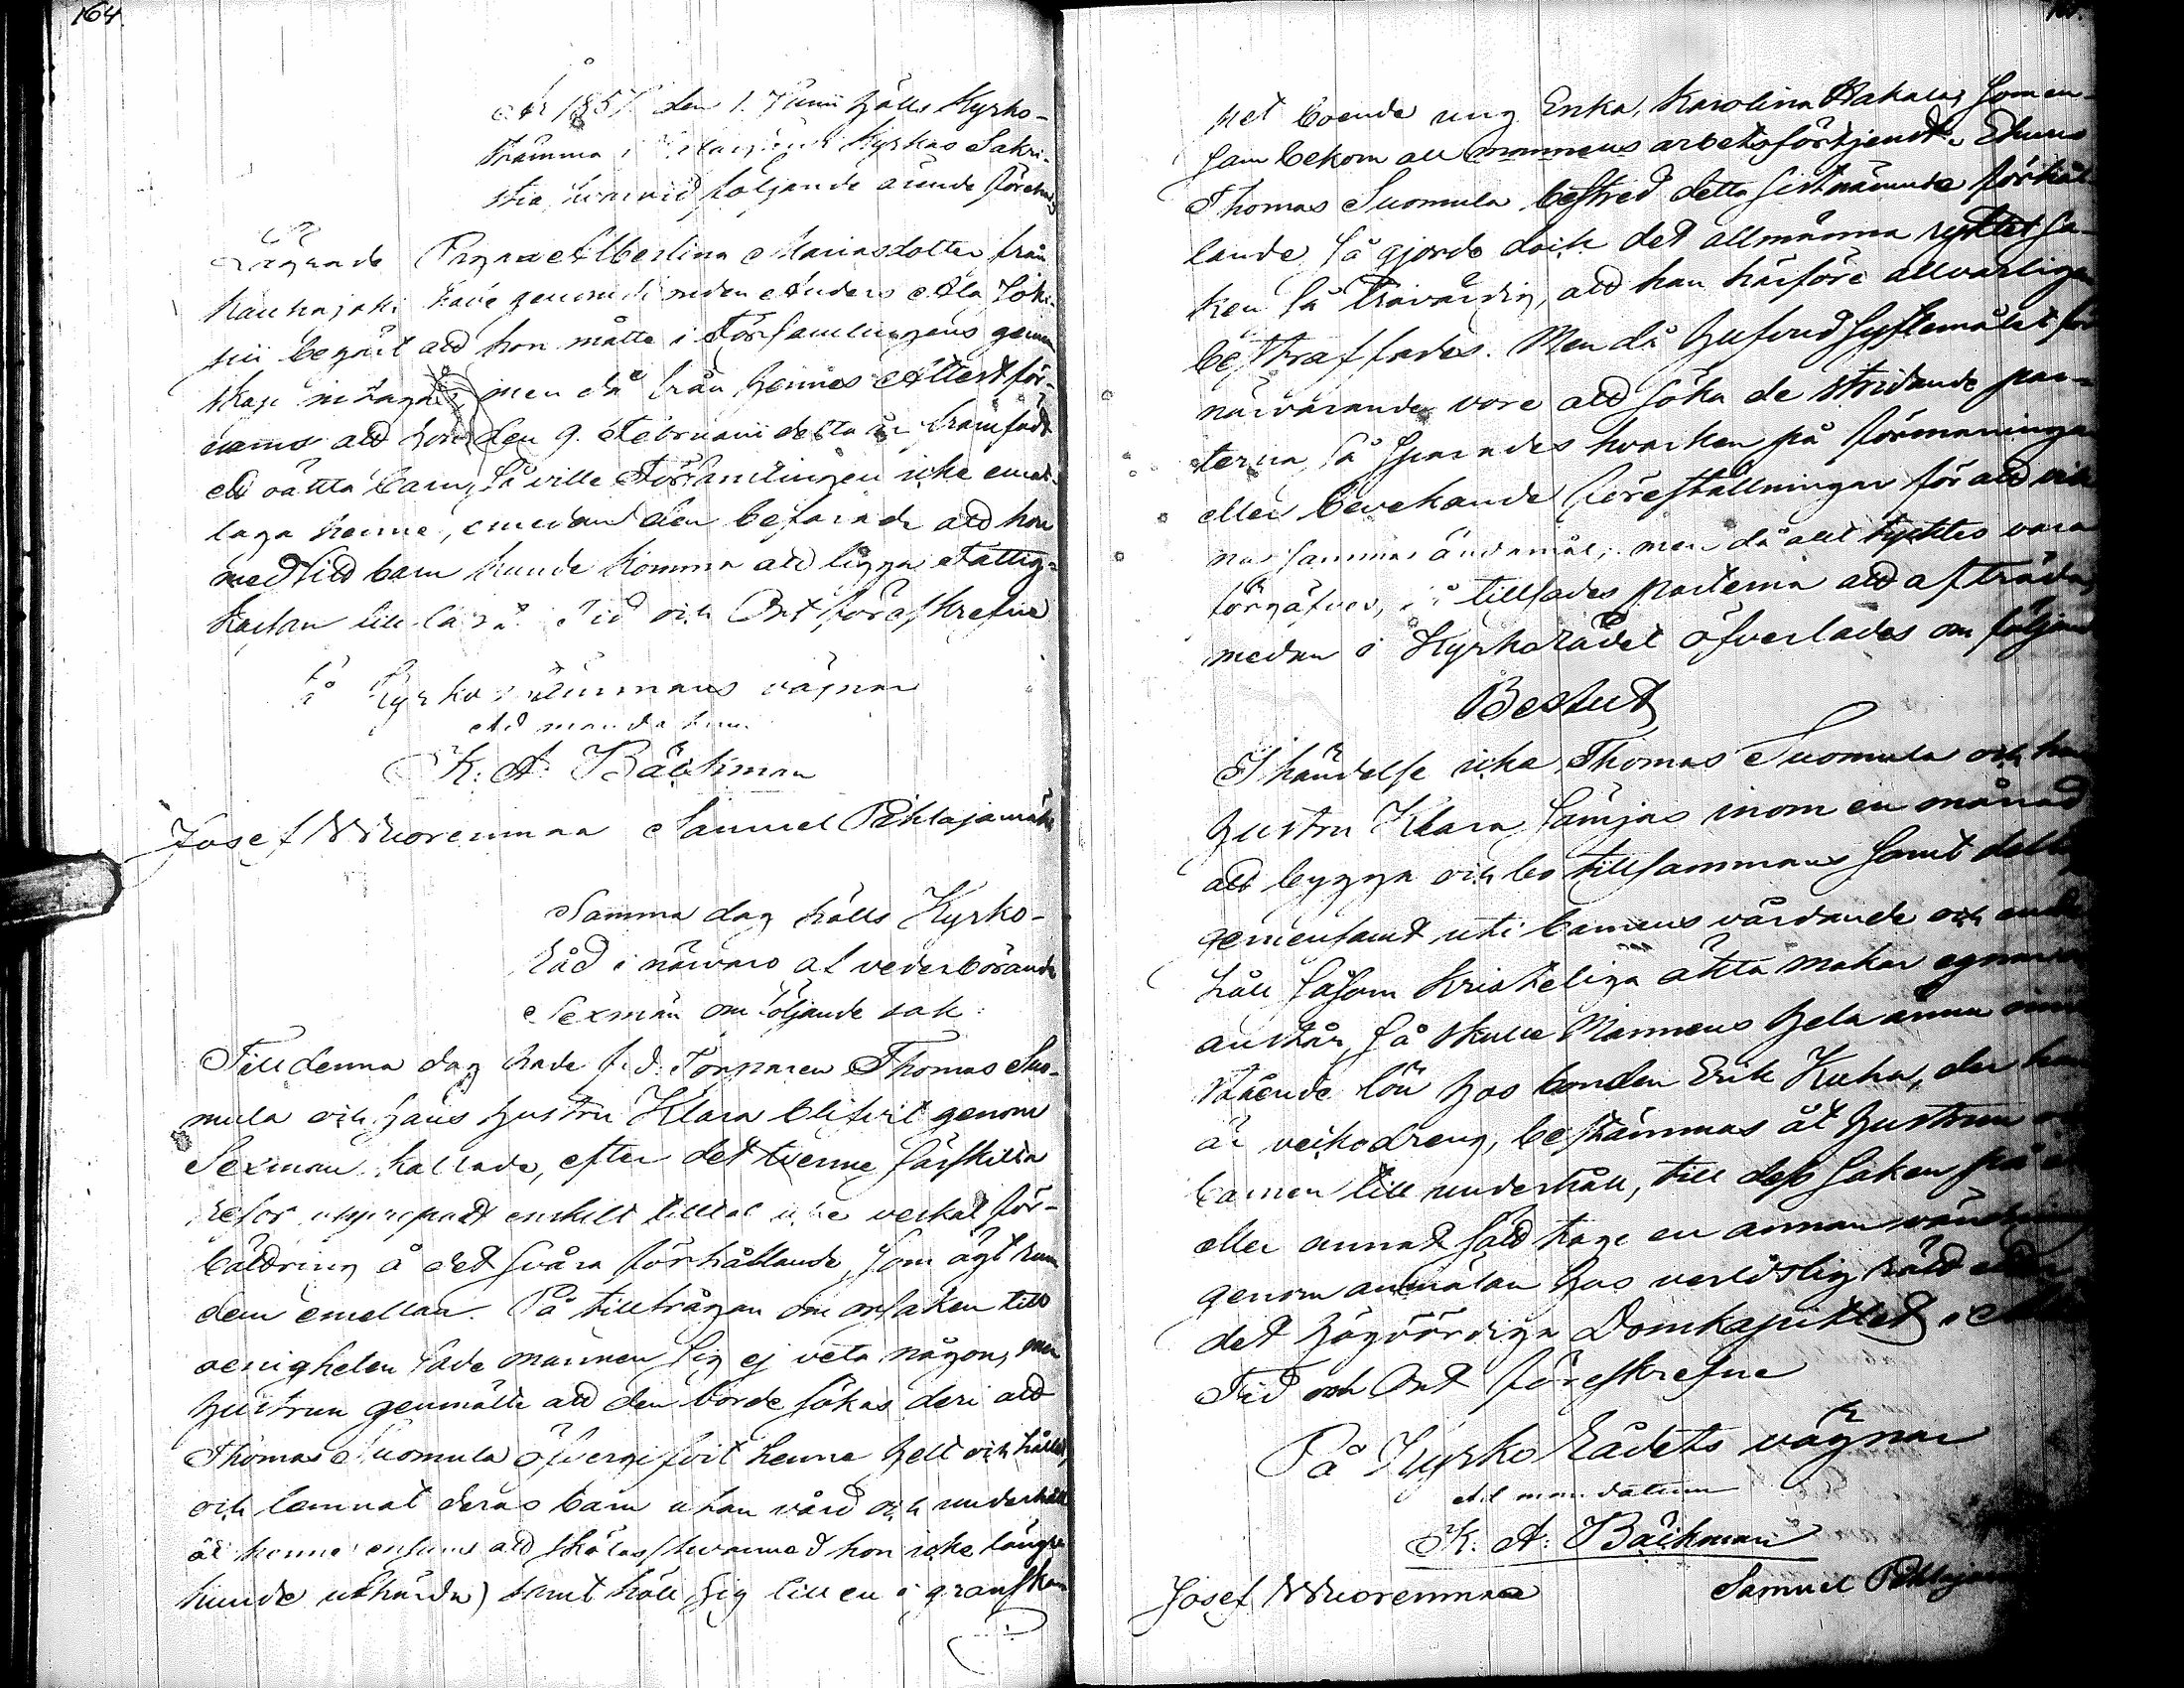 164.
År 1857 den 1. Junii hölls Kyrko-
stämma i Kyrkas Sakri-
stia, hvarvid följande ärende förehades
§
Pigan Albertina Mariasdotter från
Kauhajoki hade genom bonden Anders Ala Joki-
pii begärt att hon måtte i Församlingens gemen
skap intagas, men då från hennes Attest för-
nams att hon den 9. Februarii detta år framfödt
ett oäkta barn, så ville Församlingen icke emot-
taga henne, emedan den befarade att hon
med sitt barn kunde komma att ligga Fattig-
kassan till last. Tid och Ort föreskrefne
På Kyrkostämmans vägnar
Ad mandatum
K. A. Bäckman
Josef Wuorenmaa Samuel Pihlajamäki
Samma dag hölls Kyrko-
Råd i närvaro af vederbörande
Sexmän om följande sak:
Till denna dag hade f.d. Torparen Thomas Suo-
mula och hans hustru Klara blifvit genom
Sexman kallade, efter det tvenne särskilta
resor upprepadt enskilt tilltal icke verkat för-
bättring å det svåra förhållande, som ägt rum
dem emellan. På tillfrågan om orsaken till
oenigheten sade mannen sig ej veta någon, men
hustrun genmälte att den borde sökas deri att
Thomas Suomula öfvergifvit henne helt och hållet,
och lemnat deras barn utan vård och underhåll
åt henne ensam att skötas (hvarmed hon icke längre
kunde uthärda) samt höll sig till en i granska
pet boende ung Enka, Karolina Hakala, som en-
sam bekom all mannens arbetsförtjenst. Ehuru
Thomas Suomula bestred detta sistnämnde förhål
lande, så gjorde dock det allmänna ryktet sa-
ken så trovärdig, att han härföre allvarligen
bestraffades. Men då hufvudsyftemålet för
närvarande vore att söka de stridande par-
terna, så sparades hvarken på förmaningar
eller bevekande föreställningar för att vin
na samma ändamål, men då allt tycktes vara
förgäfves, så tillsades parterna att afträda,
medan i Kyrkorådet öfverlades om följande
Beslut
I händelse icke Thomas Suomula och hans
hustru Klara sämjas inom en månad
att bygga och bo tillsammans samt deltaga
gemensamt uti barnens vårdande och under
håll såsom Kristeliga äkta makar egnar och
anstår, så skulle Mannens hela ännu inne
stående lön hos bonden Erik Kuha, der han
är veckodreng, bestämmas åt hustrun och
barnen till underhåll, till dess saken på ett
eller annat sätt tage en annan vändning
genom anmälan hos verldslig rätt eller
det högvördiga Domkapitlet i Åbo.
Tid och Ort föreskrefne
På Kyrko Rådets vägnar
Ad mandatum
K. A. Bäckman
Josef Wuorenmaa Samuel Pihlajam